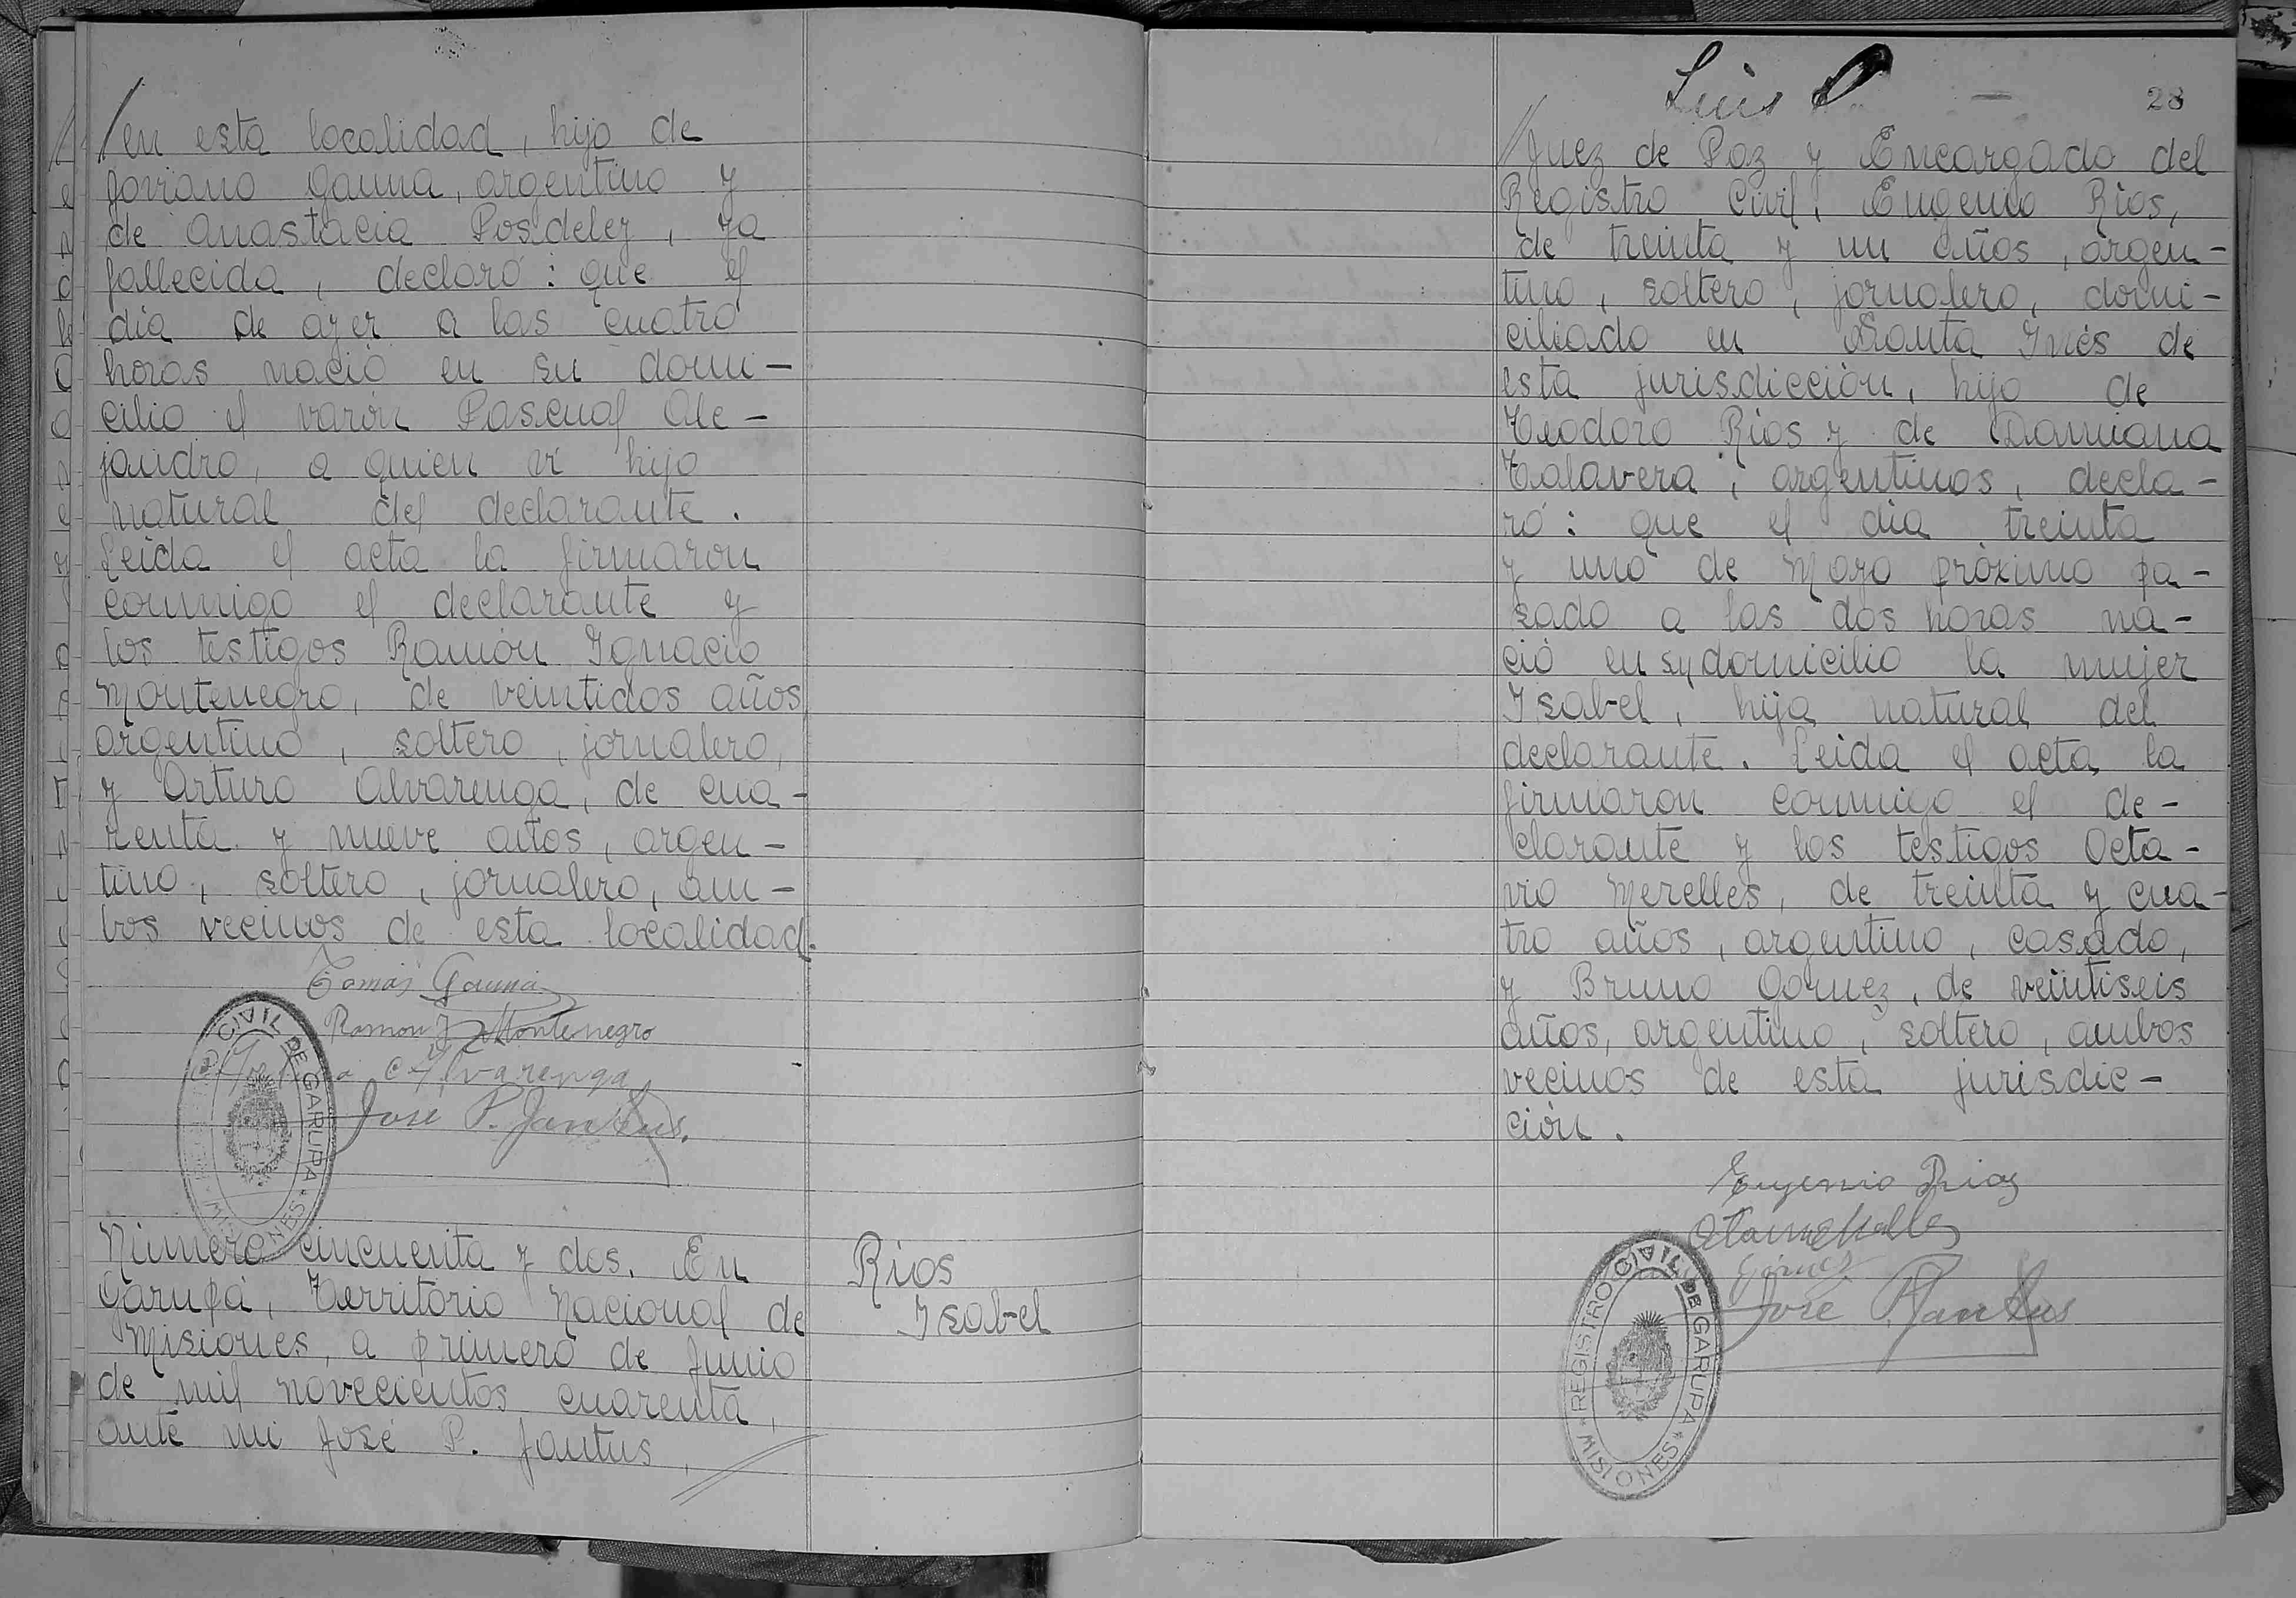 en esta localidad, hijo de
Joviano Gauna, argentino y
de Anastacia Posdeley, ya
fallecida, declaró: que el
día de ayer a las cuatro
horas nació en su domi-
cilio el varón Pascual Ale-
jandro, a quien vi hijo
natural del declarante.
Leida el acta la firmaron
conmigo el declarante y
los testigos Ramón Ignacio
Montenegro, de veintidos años
argentino, soltero, jornalero,
y Arturo Alvarenga, de cua-
renta y nueve años, argen-
tino, soltero, jornalero, am-
bos vecinos de esta localidad.
Tomás Gauna
Ramon I Montenegro
Alvarenga
José P. Jantus.
CIVIL DE GARUPA
MISIONES
Número cincuenta y dos. En
Garupá, Territorio Nacional de
Misiones, a primero de Junio
de mil novecientos cuarenta,
ante mi José P. Jantus,
Rios
Isabel
Luis
28
Juez de Paz y Encargado del
Registro Civil, Eugenio Rios,
de treinta y un años, argen-
tino, soltero, jornalero, domi-
ciliado en Santa Inés de
esta jurisdicción, hijo de
Teodoro Rios y de Damiana
Talavera, argentinos, decla-
ró: que el dia treinta
y uno de Mayo próximo pa-
sado a las dos horas na-
ció en su domicilio la mujer
Isabel, hija natural del
declarante. Leida el acta la
firmaron conmigo el de-
clarante y los testigos Octa-
vio Merelles, de treinta y cua-
tro años, argentino, casado,
y Bruno Gomez, de veintiseis
años, argentino, soltero, ambos
vecinos de esta jurisdic-
ción.
Eugenio Rios
Gómez
José P. Jantus
REGISTRO CIVIL DE GARUPA
* MISIONES *